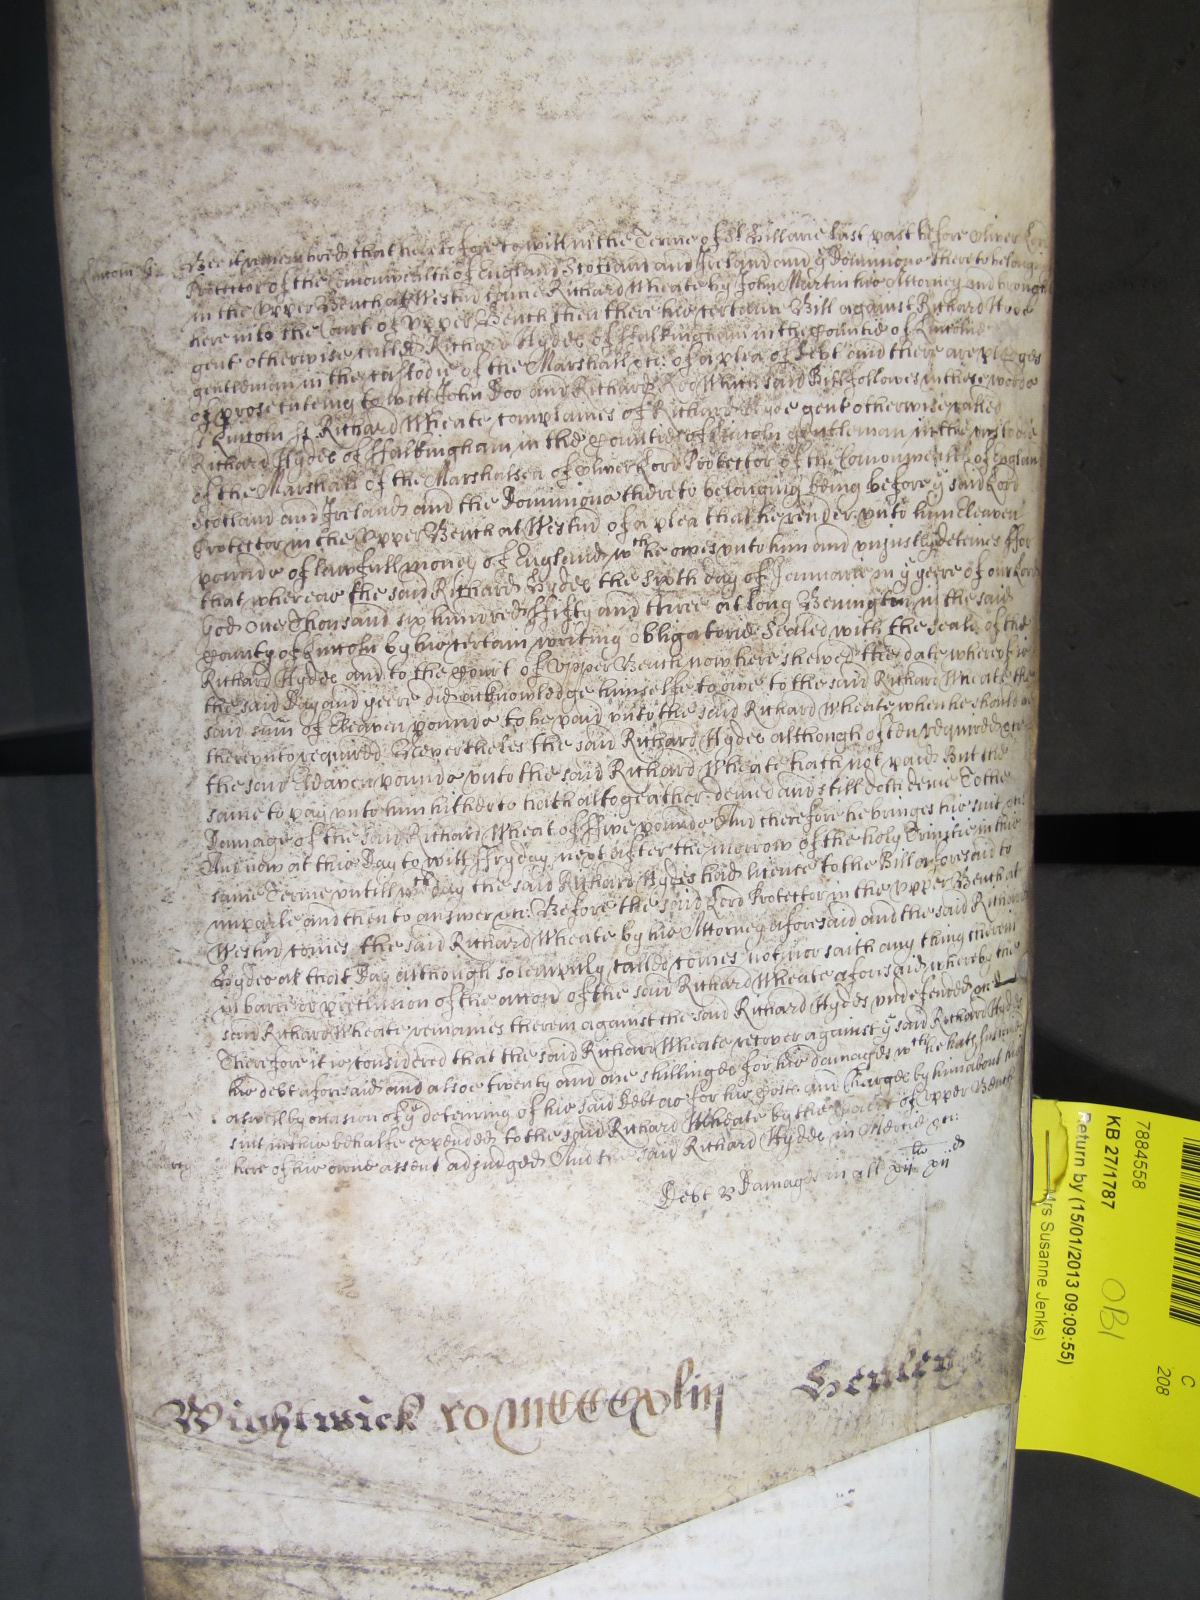 Lincoln ss
Bee it remembred that heretofore to witt in the Terme of St Hillarie last past before Oliver Lord
Protector of the Comonwealth of England Scotland and Ireland and ye Dominions thereto belonging
in the Upper Bench at Westmr came Richard Wheate by John Martin his Attorney and brought
here into the Court of Upper Bench then there his certaine Bill against Richard Hyde
gent otherwise called Richard Hydes of ffalkingham in the Countie of Lincolne
gentleman in the custodie of the Marshall &c: of a plea of debt and there are pledges
of prosecuteing to witt John Doo and Richard Roo Which said Bill followes in these words
Lincoln ss Richard Wheate complaines of Richard Hyde gent otherwise called
Richard Hydes of ffalkingham in the Countie of Lincoln gentleman in the custodie
of the Marshall of the Marshalsea of Oliver Lord Protector of the Comonwealth of England
Scotland and Ireland and the Dominions thereto belonging being before ye said Lord
Protector in the Upper Bench at Westmr of a plea that he render unto him Eleaven
pounds of lawfull money of England wch he owes unto him and unjustly deteines ffor
that whereas the said Richard Hydes the sixth day of Januarie in ye yeere of our Lord
God One Thousand six hundred ffifty and three at long Benington in the said
County of Lincoln by his certain writing obligatorie Sealed with the seale of the
Richard Hydes and to the Court of Upper Bench now here shewed the date whereof is
the said Day and yeere did acknowledge himselfe to owe to the said Richard Wheate the
said sum of Eleaven pounds to be paid unto the said Richard Wheate when he should be
thereunto required Neverthelesse the said Richard Hydes although often required &c
the said Eleaven pounds unto the said Richard Wheate hath not paid But the
same to pay unto him hitherto hath altogeather denied and still doth denie To the
Damage of the said Richard Wheat of ffive pounds And therefore he bringes his suit &c:
And now at this Day to witt ffryday next after the morrow of the holy Trinitie in this
same Terme untill wch day the said Richard Hydes had licence to the Bill aforesaid to
imparle and then to answer &c: Before the said Lord Protector in the Upper Bench at
Westmr comes the said Richard Wheate by his Attorney aforesaid and the said Richard
Hydes at that Day although solemnly called comes not nor saith any thing therein
in barre or preclusion of the accon of the said Richard Wheate aforesaid whereby the
said Richard Wheate remaines therein against the said Richard Hydes undefended &c
Therefore it is considered that the said Richard Wheate recover against ye said Richard Hydes
his debt aforesaid and alsoe twenty and one shillinges for his damages wch he hath susteined
aswell by occasion of ye deteining of his said Debt as for his Costs and Charges by him about his
suit in this behalfe expended to the said Richard Wheate by the Court of Upper Bench
here of his owne assent adjudged And the said Richard Hydes in Mercie &c:
Debt & Damages in all xijli xijd
Wightwick ro mccccxliij Henley
7884558
KB 27/1787
Return by (15/01/2013 09:09:55)
Mrs Susanne Jenks)
OBI
C
208